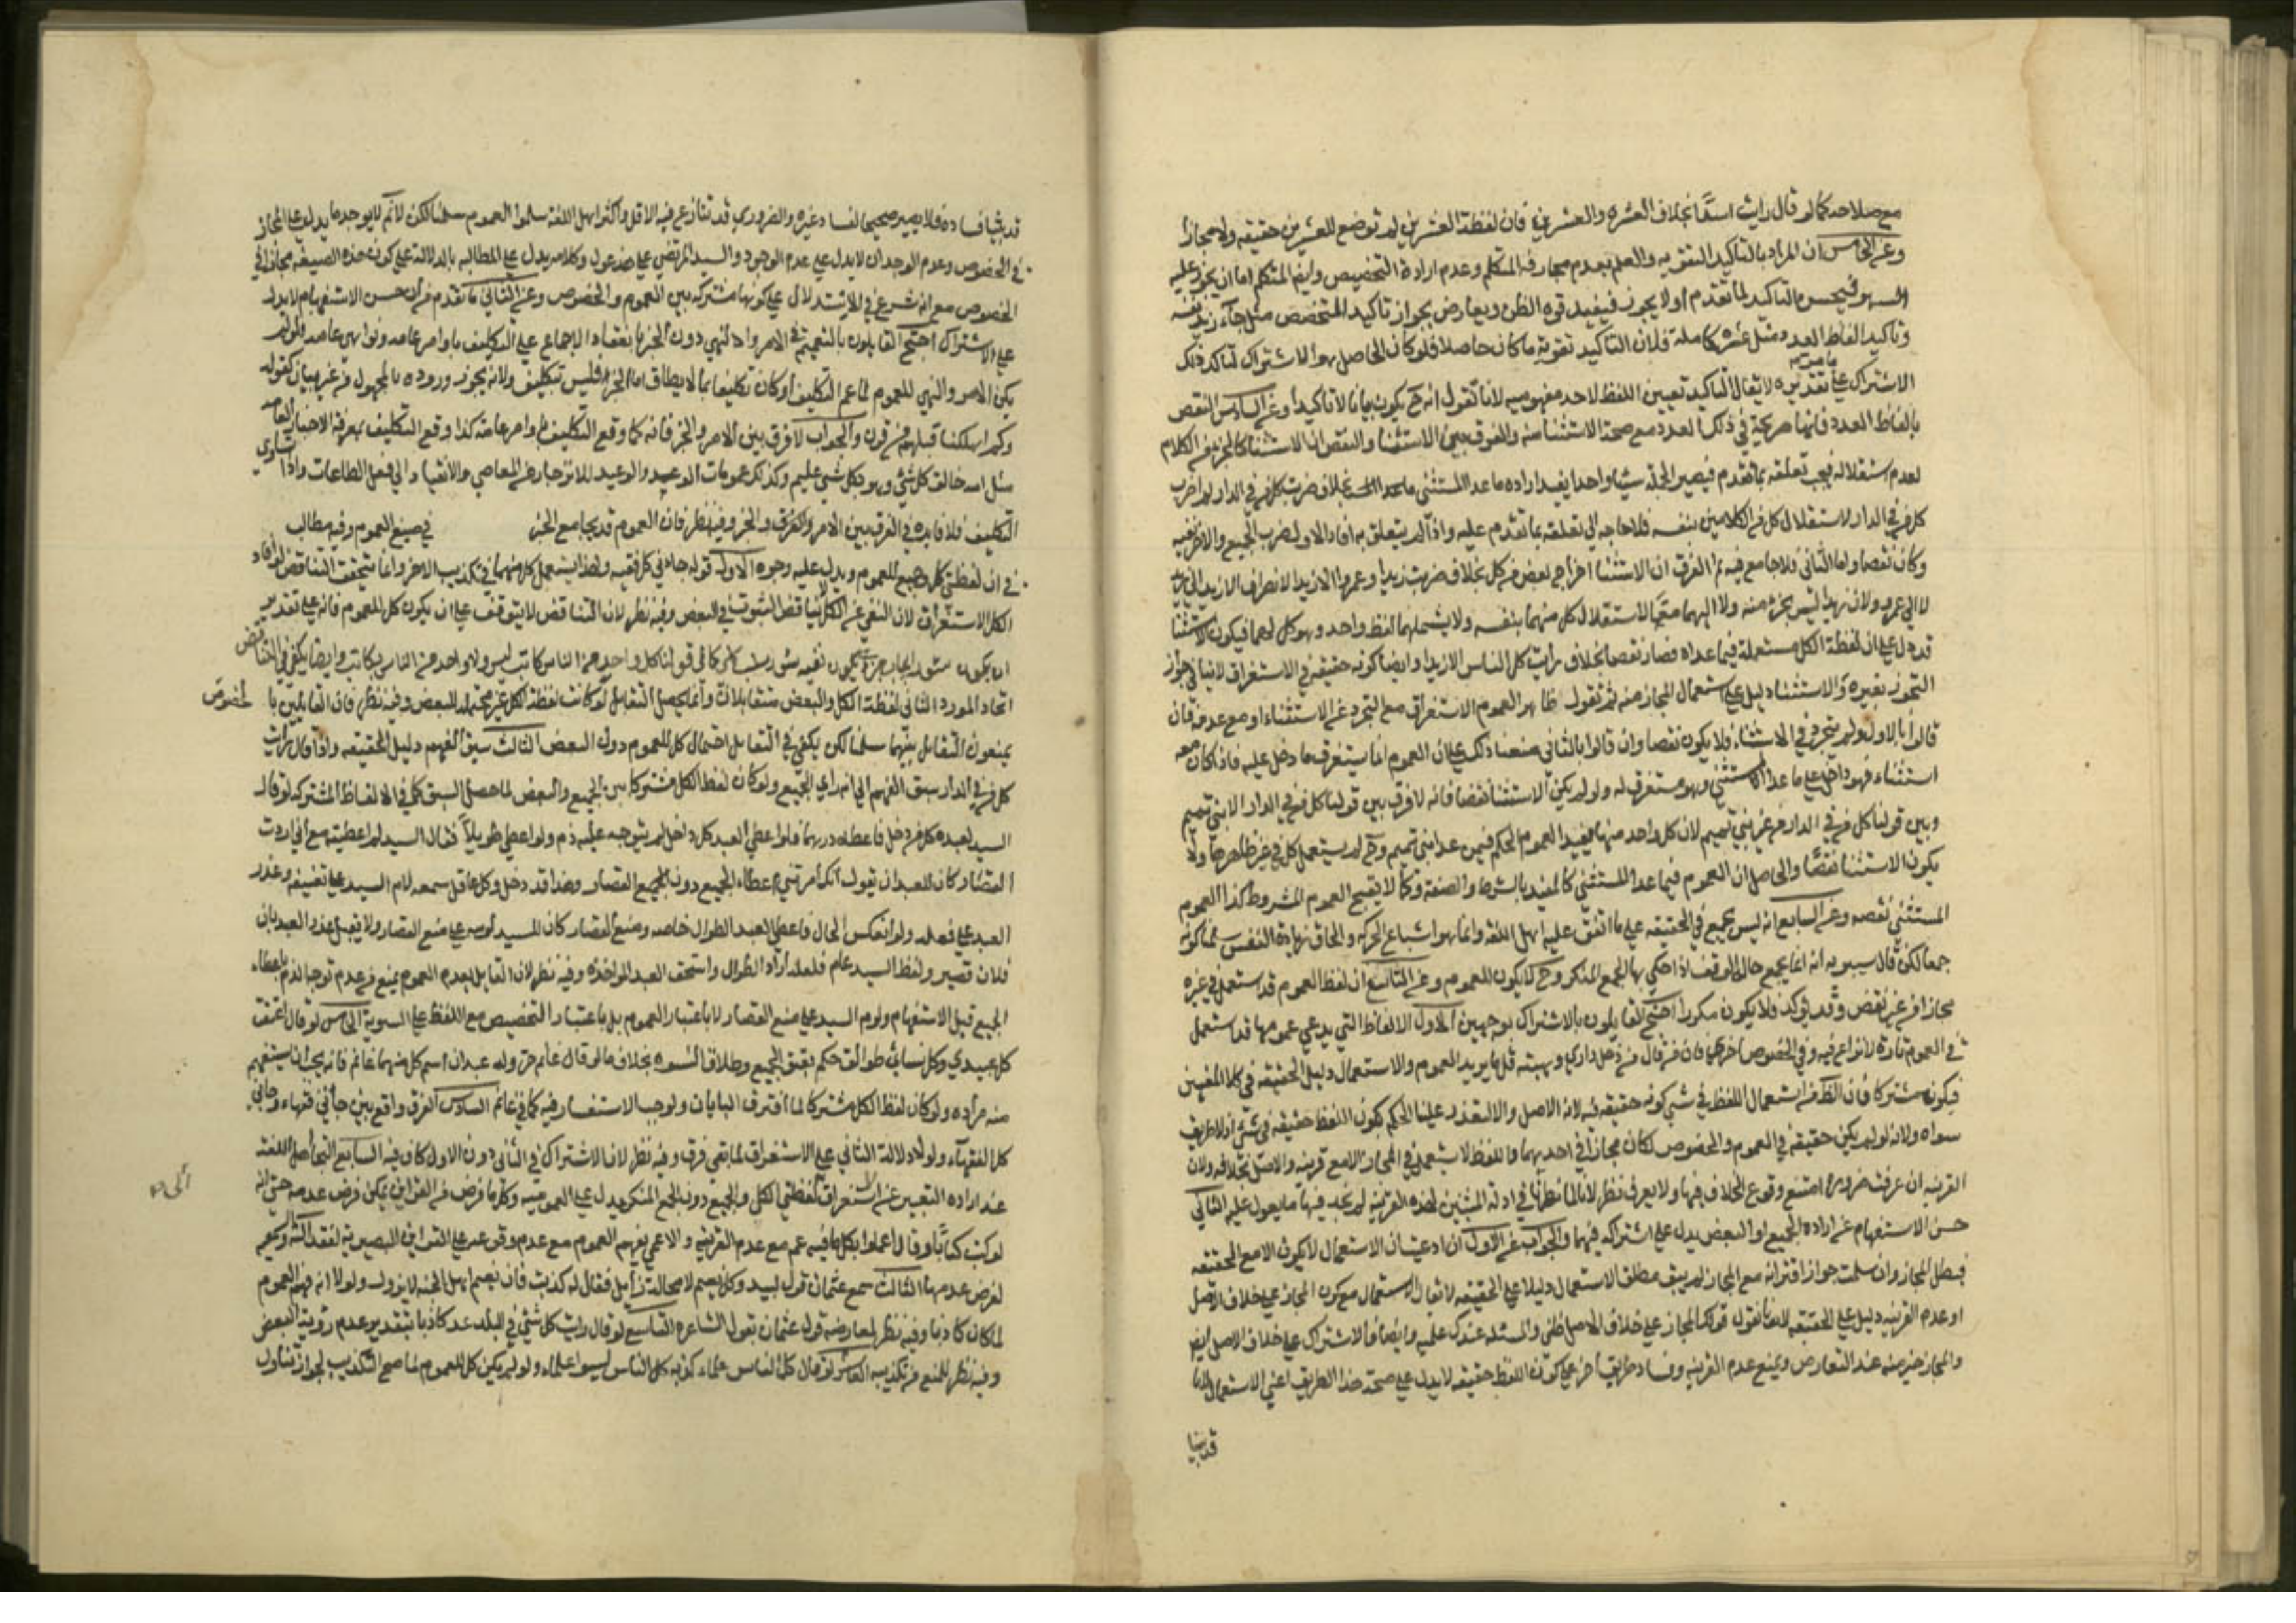 مع صلاحه كما لو قال رايت اسدًا بخلاف العشره والعشرين فان لفظة العشرين لم توضع للعشر من حقيقه ولا مجازا
وعن الخامس ان المراد بالتاكيد التقويه والعلم بعدم مجازفه المتكلم وعدم ارادة التخصيص وايضا المتكلم اما ان يجوز عليه
السهو فيحسن التاكيد لما تقدم أو لا يجوز فيفيد قوه الظن ويعارض بجواز تاكيد المتخصص مثل جاء زيد نفسه
وتاكيد الفاظ العدد مثل عشره كاملة فلان التاكيد تقوية ما كان حاصلا فلو كان الحاصل هو الاشتراك لتاكد ذلك
الاشتراك على تقديره لا يقال التاكيد تعيين اللفظ لاحد مفهوميه لانا نقول انه ح يكون بيانا لا تاكيدا وعن السادس النقص
بالفاظ العدد فانها صريحة في ذلك العدد مع صحة الاستثنا منه والفرق بين الاستثنا والنقص ان الاستثنا كالجزء من الكلام
لعدم استقلاله فيجب تعلقه بما تقدم فيصير الجملة شيئا واحدا يفيد اراده ما عدا المستثنى بخلاف ضربت كل من في الدار لم اضرب
كل من في الدار لاستقلال كل من الكلامين بنفسه فلا حاجه الى تعلقه بما تقدم عليه واذا لم يتعلق به افاد الاول ضرب الجميع والاخر نفيه
وكان نقصا واما الثاني فلا جامع فيه ثم الفرق ان الاستثنا اخراج بعض من كل بخلاف ضربت زيدا وعمروا الا زيدا لانصراف الا زيد الى زيد
لا الى عمرو ولان زيدا ليس بجزء منه ولا اليهما معًا لاستقلال كل منهما بنفسه ولا يشملهما لفظ واحد وهو كل لهما فيكون الاستثنا
قد دل على ان لفظة الكل مستعملة فيما عداه فصار نقصا بخلاف رايت كل الناس الا زيدا وايضا كونه حقيقة في الاستغراق لا ينافي جواز
التجوز بغيره والاستثنا دليل على استعمال المجاز منه ثم نقول ظاهر العموم الاستغراق مع التجرد عن الاستثناء او مع عدمه فان
قالوا بالاول ولم يتجرد في الاستثناء فلا يكون نقصا وان قالوا بالثاني منعنا ذلك على ان العموم انما يستغرق ما دخل عليه فاذا كان معه
استثناء فهو داخل على ما عدا المستثنى وهو مستغرق له ولو لم يكن الاستثنا نقضا فانه لا فرق بين قولنا كل من في الدار الا بني تميم
وبين قولنا كل من في الدار من غير بني تميم لان كل واحد منهما يفيد العموم الحكم فيمن عدا بني تميم وح لم يستعمل كل في غير ظاهرها ولا
يكون الاستثنا نقصًا والحاصل ان العموم فيما عدا المستثنى كالمقيد بالشرط والصفة وكما لا يقبح العموم المشروط كذا العموم
المستثنى نقصه وعن السابع انه ليس بجمع في الحقيقه على ما اتفق عليه اهل اللغه وانما هو اشباع الحركه والحاق زيادة النفس كونه
جمعا لكن قال سيبويه انه انما يجمع حال الوقف اذا حكى بها الجمع المنكر وح لا يكون للعموم وعن التاسع ان لفظ العموم قد استعمل في غيره
مجازا من غير نقض وقد يوكد فلا يكون مكررا احتج القايلون بالاشتراك بوجهين الاول الالفاظ التي يدعى عمومها قد استعمل
في العموم تارة لا نزاع فيه وفي الخصوص اخرى فان من قال من دخل داري وهبته قلما يريد العموم والاستعمال دليل الحقيقه في كلا المعنيين
فيكون مشتركا فان الظ من استعمال اللفظ في شي كونه حقيقه فيه لانه الاصل والا لتعذر علينا الحكم بكون اللفظ حقيقه في شي اذ لا طريق
سواه ولانه لو لم يكن حقيقة في العموم والخصوص لكان مجازا في احدهما فاللفظ لا يستعمل في المجاز الا مع قرينه والاصل بخلافه ولان
القرينه ان عرفت ضرورة امتنع وقوع الخلاف فيها ولا يعرف نظر لانا لما نظرنا في ادلة المثبتين لهذه القرينه لم نجد فيها ما يعول عليه الثاني
حسن الاستفهام عن ارادة الجميع او البعض يدل على اشتراكه فيهما والجواب عن الاول ان ادعيت ان الاستعمال لا يكون الا مع الحقيقه
فبطل المجاز وان سلمت جواز اقترانه مع المجاز لم يبق مطلق الاستعمال دليلا على الحقيقه لا يقال الاستعمال مع كون المجاز على خلاف الاصل
او عدم القرينه دليل على الحقيقه لانا نقول قولك المجاز على خلاف الاصل ظني والمسئله عندك علميه وايضا فالاشتراك على خلاف الاصل ايض
والمجاز خير منه عند التعارض ونمنع عدم القرينه وفساد طريق اخر على كون اللفظ حقيقه لا يدل على صحة هذا الطريق اعني الاستعمال لانا
قد بينا
قد بينا فساده فلا يصير صحيحا لفساد غيره والضروري قد تنازع فيه الاقل واكثر اهل اللغة سلموا العموم سلمنا لكن لا نم لا يوجد ما يدل على المجاز
في الخصوص وعدم الوجدان لا يدل على عدم الوجود والسيد المرتضى على هذ عول وكلامه يدل على المطالبه بالدلالة على كون هذه الصيغه مجازا في
الخصوص مع انه شرع في الاستدلال على كونها مشتركه بين العموم والخصوص وعن الثاني ما تقدم من ان حسن الاستفهام لا يدل
على الاشتراك احتج القايلون بالتعميم في الامر والنهي دون الخبر بانعقاد الاجماع على التكليف باوامر عامه ونواهي عامه فلو لم
يكن الامر والنهي للعموم لما عم التكليف أو كان تكليفا بما لا يطاق اما الخبر فليس بتكليف ولانه يجوز وروده بالمجهول من غير بيان كقوله
وكم اهلكنا قبلهم من قرن والجواب لا فرق بين الامر والخبر فانه كما وقع التكليف باوامر عامه كذا وقع التكليف بمعرفة الاخبار العامه
مثل الله خالق كل شي وهو بكل شي عليم وكذلك عمومات الوعد والوعيد للانزجار عن المعاصي والانقياد الى فعل الطاعات واذا تساوى
التكليف فلا فايده في الفرق بين الامر والخبر وفيه نظر فان العموم قد يجامع الخبر في صيغ العموم وفيه مطالب
في ان لفظتي كل وجميع للعموم ويدل عليه وجوه الاول قوله جاءني كل فقيه ولهذا يستعمل كل منهما في تكذيب الاخر وانما يتحقق التناقض لو افاد
الكل الاستغراق لان النفي عن الكل لا يناقض الثبوت في البعض وفيه نظر لان التناقض لا يتوقف على ان يكون كل للعموم فانه على تقدير
ان يكون كما في قولنا كل واحد من الناس كاتب ليس ولا واحد من الناس بكاتب وايضا يكفي في التناقض
اتحاد المورد الثاني لفظة الكل والبعض متقابلان وانما يحصل التقابل لو كانت لفظة الكل غير محتمله للبعض وفيه نظر فان القايلين با
لخصوص
يمنعون التقابل بينهما سلمنا لكن يكفي في التقابل احتمال كل للعموم دون البعض الثالث سبق الفهم دليل الحقيقه واذا قال رايت
كل من في الدار سبق الفهم الى انه راى الجميع ولو كان لفظ الكل مشتركا بين الجميع والبعض لما حصل السبق كما في الالفاظ المشتركه لو قال
السيد لعبده كل من دخل فاعطه درهما فلو اعطى العبد كل داخل لم يتوجه عليه ذم ولو اعطى طويلًا فقال السيد لم اعطيته مع اني اردت
القصار كان للعبد ان يقول انك أمرتني باعطاء الجميع دون القصار وهذا قد دخل وكل عاقل سمعه لام السيد على تعنيفه وعذر
العبد على فعله ولو انعكس الحال فاعطى العبد الطوال خاصه ومنع القصار كان للسيد لومه على منع القصار ولا يقبل عذر العبد بان
فلان قصير ولفظ السيد عام فلعله اراد الطوال واستحق العبد المواخذه وفيه نظر لان القايل بعدم العموم يمنع من عدم توجه الذم باعطاء
الجميع قبل الاستفهام ولوم السيد على منع القصار لا باعتبار العموم بل باعتبار التخصيص مع اللفظ على السوية الخامس لو قال اعتقت
كل عبيدي وكل نسائي طوالق حكم بعتق الجميع وطلاق النسوه بخلاف ما لو قال غانم حر وله عبدان اسم كل منهما غانم فانه يجب ان يستفهم
منه مراده ولو كان لفظ الكل مشتركا لما افترق البابان ولوجب الاستفسار فيه كما في غانم السادس الفرق واقع بين جاني فقهاء وجاني
كل الفقهاء ولولا دلالة الثاني على الاستغراق لما بقي فرق وفيه نظر لان الاشتراك في الثاني دون الاول كاف فيه السابع التجا اهل اللغة
عند اراده التعبير عن الاستغراق الى لفظتي الكل والجميع دون الجمع المنكر يدل على العموميه وكل ما فرض من القراين يمكن فرض عدمه حتى انه
لو كتب كتابًا وقال اعملوا بكل ما فيه عم مع عدم القرينه والاعمى يفهم العموم مع عدم وقوعه على القراين البصرية لفقد آلته وسمعه
لفرض عدمها الثالث سمع عثمان قول لبيد وكل نعيم لا محالة زايل فقال له كذبت فان نعيم اهل الجنه لا يزول ولولا انه فهم العموم
لما كان كاذبا وفيه نظر لمعارضه قول عثمان بقول الشاعر التاسع لو قال رايت كل شي في البلد عد كاذبا بتقدير عدم رؤية البعض
وفيه نظر للمنع من تكذيبه العاشر لو قال كل الناس علماء كذبه كل الناس ليسوا علماء ولو لم يكن كل للعموم لما صح التكذيب لجواز تناول